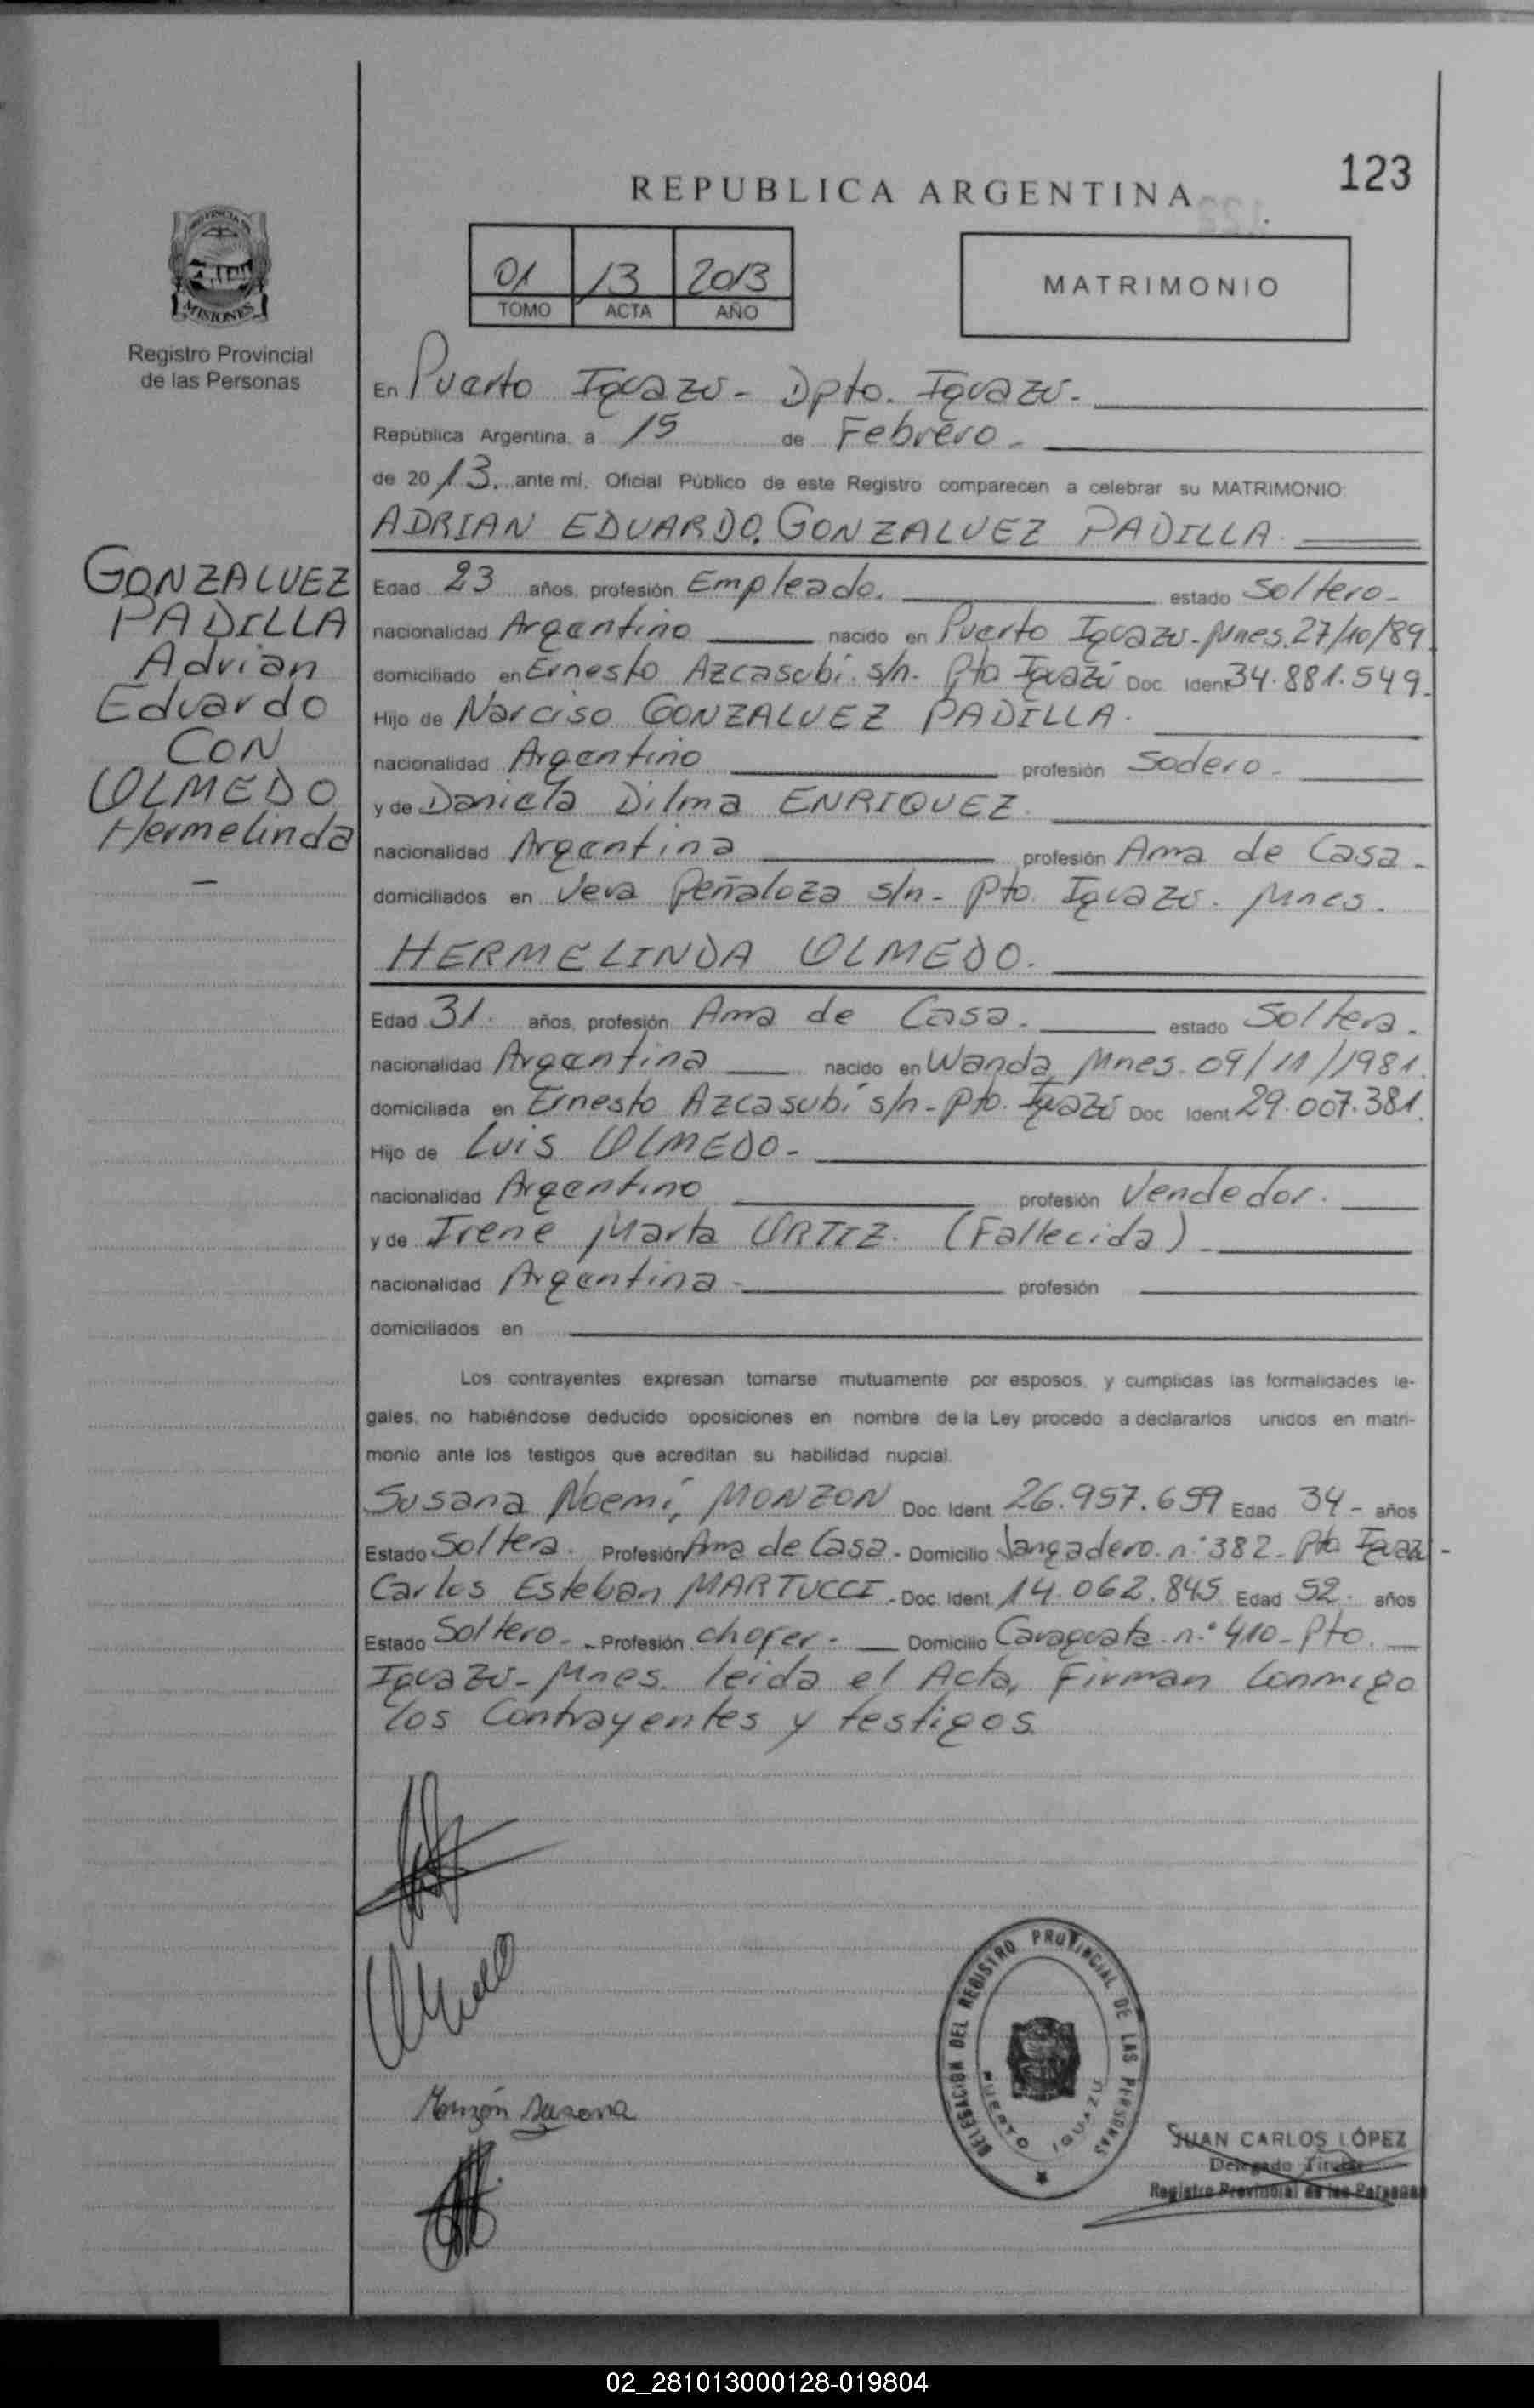 123
REPUBLICA ARGENTINA
PROVINCIA
MISIONES
Registro Provincial
de las Personas
01 13 2013
TOMO ACTA AÑO
MATRIMONIO
En Puerto Iguazú - Dpto. Iguazú -
República Argentina, a 15 de Febrero -
de 2013. ante mí, Oficial Público de este Registro comparecen a celebrar su MATRIMONIO:
ADRIAN EDUARDO GONZALVEZ PADILLA.
GONZALVEZ
PADILLA
Adrian
Eduardo
CON
OLMEDO
Hermelinda
-
Edad 23 años, profesión Empleado. estado Soltero -
nacionalidad Argentino nacido en Puerto Iguazú - Mnes. 27/10/89
domiciliado en Ernesto Azcasubi s/n - Pto Iguazú Doc. Ident 34.881.549.
Hijo de Narciso GONZALVEZ PADILLA.
nacionalidad Argentino profesión Sodero -
y de Daniela Dilma ENRIQUEZ.
nacionalidad Argentina profesión Ama de Casa -
domiciliados en Vera Peñaloza s/n - Pto. Iguazú. Mnes.
HERMELINDA OLMEDO.
Edad 31. años, profesión Ama de Casa. estado Soltera.
nacionalidad Argentina nacido en Wanda, Mnes. 09/11/1981.
domiciliada en Ernesto Azcasubi s/n - Pto. Iguazú Doc Ident 29.007.381.
Hijo de Luis OLMEDO -
nacionalidad Argentino profesión Vendedor.
y de Irene Marta ORTIZ. (Fallecida) -
nacionalidad Argentina - profesión
domiciliados en
Los contrayentes expresan tomarse mutuamente por esposos, y cumplidas las formalidades le-
gales, no habiéndose deducido oposiciones en nombre de la Ley procedo a declararlos unidos en matri-
monio ante los testigos que acreditan su habilidad nupcial.
Susana Noemí, MONZON Doc. Ident. 26.957.659 Edad 34 - años
Estado Soltera. Profesión Ama de Casa - Domicilio Jangadero. n° 382 - Pto Iguazú -
Carlos Esteban MARTUCCI - Doc. Ident. 14.062.845 Edad 52. años
Estado Soltero - Profesión chofer - Domicilio Caraguata n.° 410 - Pto.
Iguazú - Mnes. leida el Acta, Firman Conmigo
los Contrayentes y testigos.
Monzón Susana
DELEGACION DEL REGISTRO PROVINCIAL DE LAS PERSONAS
PUERTO IGUAZU
JUAN CARLOS LÓPEZ
Delegado Titular
Registro Provincial de las Personas
02_281013000128-019804